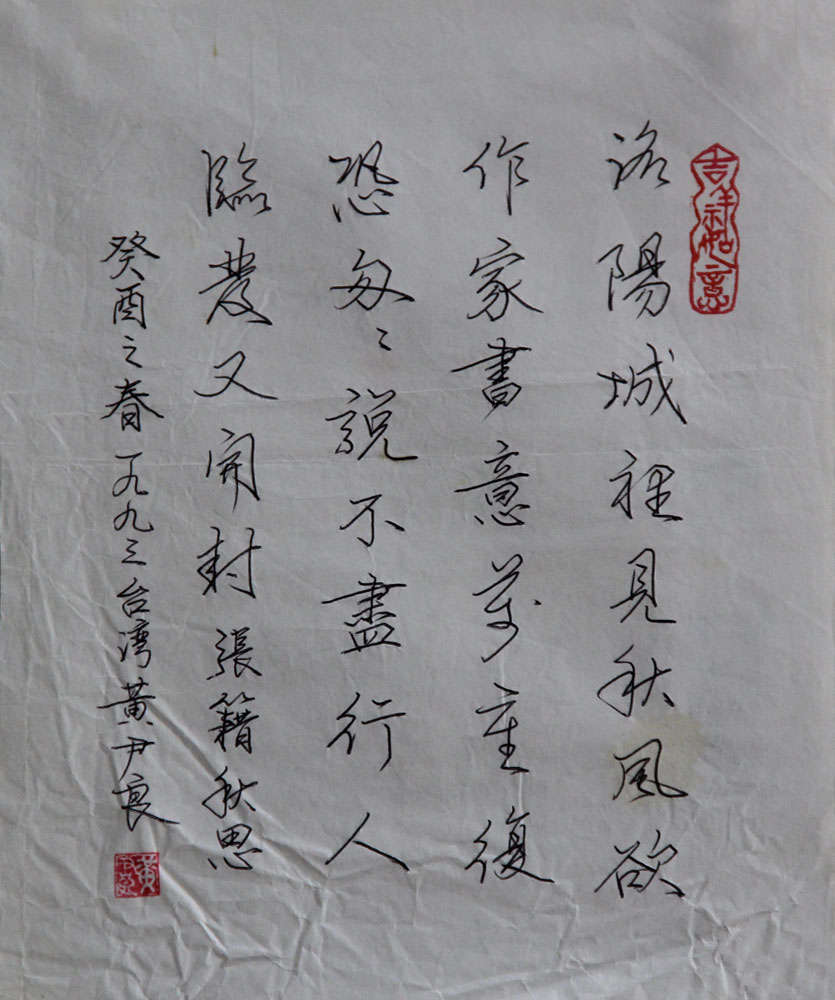 吉祥如意
洛陽城裡見秋風欲
作家書意萬重復
恐匆〻說不盡行人
臨發又開封 張籍秋思
癸酉之春一九九三台湾黃尹良